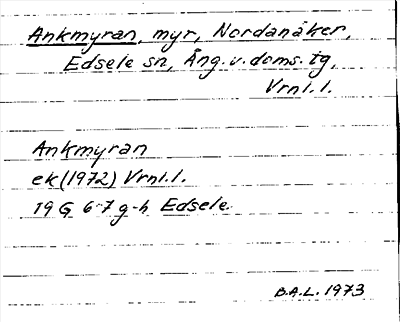 Ankmyran, myr, Nordanåker,
Edsele sn, Ång. v. doms. tg,
Vrnl. l.
Ankmyran
ek (1972) Vrnl. l.
19 G 6-7 g-h Edsele.
B.A.L. 1973